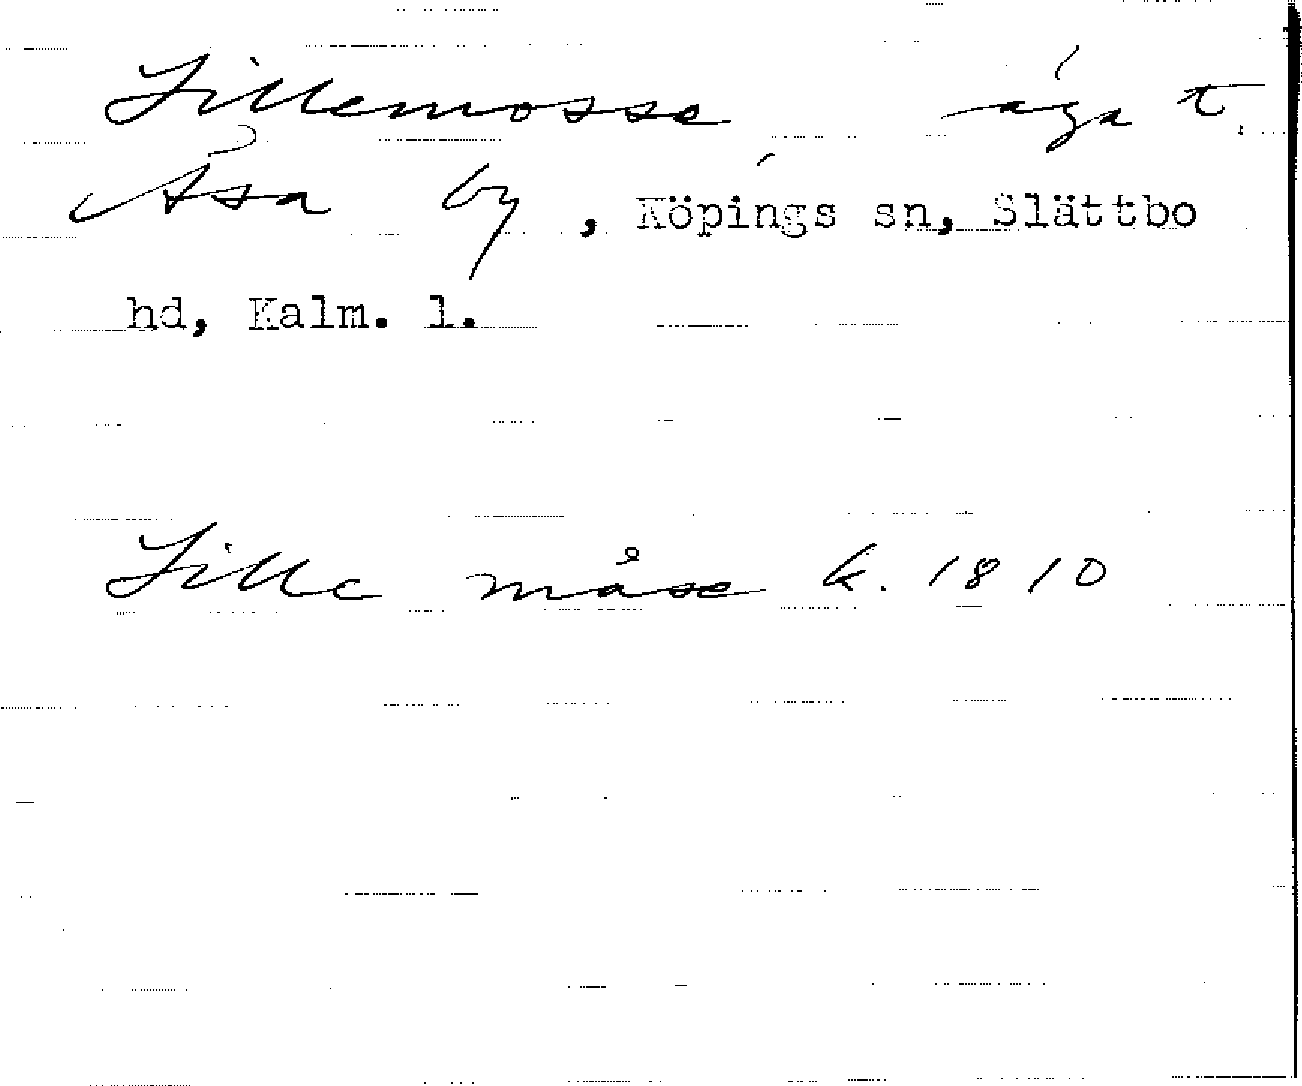 Lillemosse äga t.
Åsa by, Köpings sn, Slättbo
hd, Kalm. l.
Lille måse k. 1810